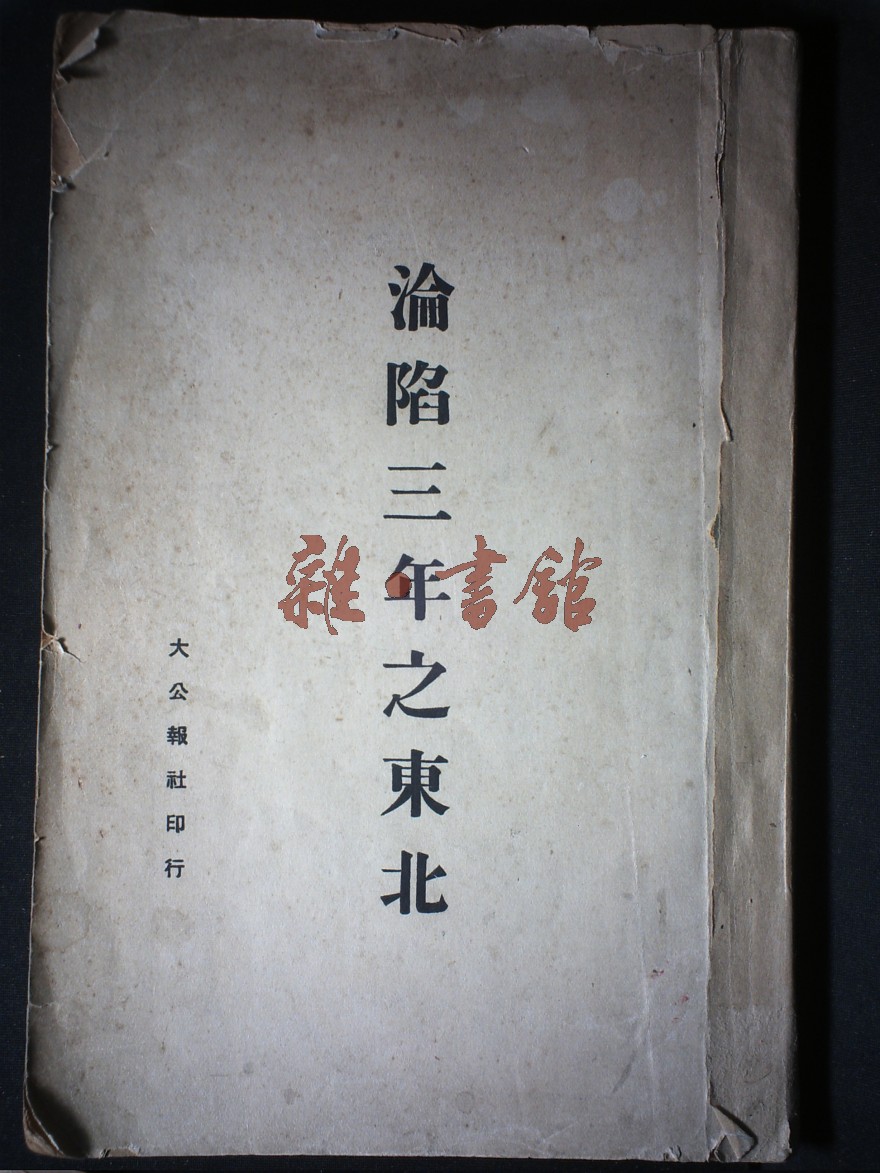 淪陷三年之東北
大公報社印行
雜·書館